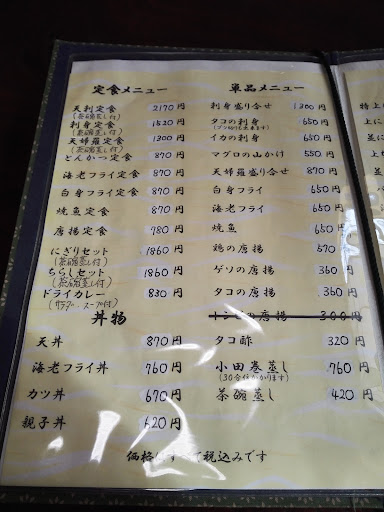 定食メニュー
天刺定食 2170円
(茶碗蒸し付)
刺身定食 1520円
(茶碗蒸し付)
天婦羅定食 1300円
(茶碗蒸し付)
とんかつ定食 870円
海老フライ定食 870円
白身フライ定食 870円
焼魚定食 870円
唐揚定食 780円
にぎりセット 1860円
(茶碗蒸し付)
ちらしセット 1860円
(茶碗蒸し付)
ドライカレー 830円
(サラダー、スープ付)
丼物
天丼 870円
海老フライ丼 760円
カツ丼 670円
親子丼 620円
単品メニュー
刺身盛り合せ 1300円
タコの刺身 650円
(ブツ切りも出来ます)
イカの刺身 650円
マグロの山かけ 550円
天婦羅盛り合せ 870円
白身フライ 650円
海老フライ 650円
焼魚 650円
鶏の唐揚 570円
ゲソの唐揚 360円
タコの唐揚 360円
の唐揚 300円
タコ酢 320円
小田巻蒸し 760円
(30分位かかります)
茶碗蒸し 420円
価格は て税込みです
特上
上に
並に
上
並